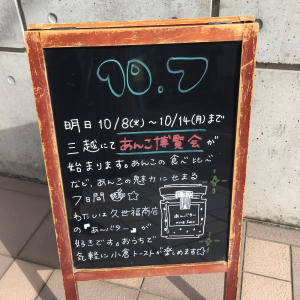 10.7
明日 10/8(火)～10/14(月)まで
三越にて あんこ博覧会が
始まります。あんこの食べ比べ
など、あんこの魅力にせまる
7日間
わたしは久世福商店
の『あんバター』が
好きです。おうちで
気軽に小倉トーストが楽しめます☆
あんバター